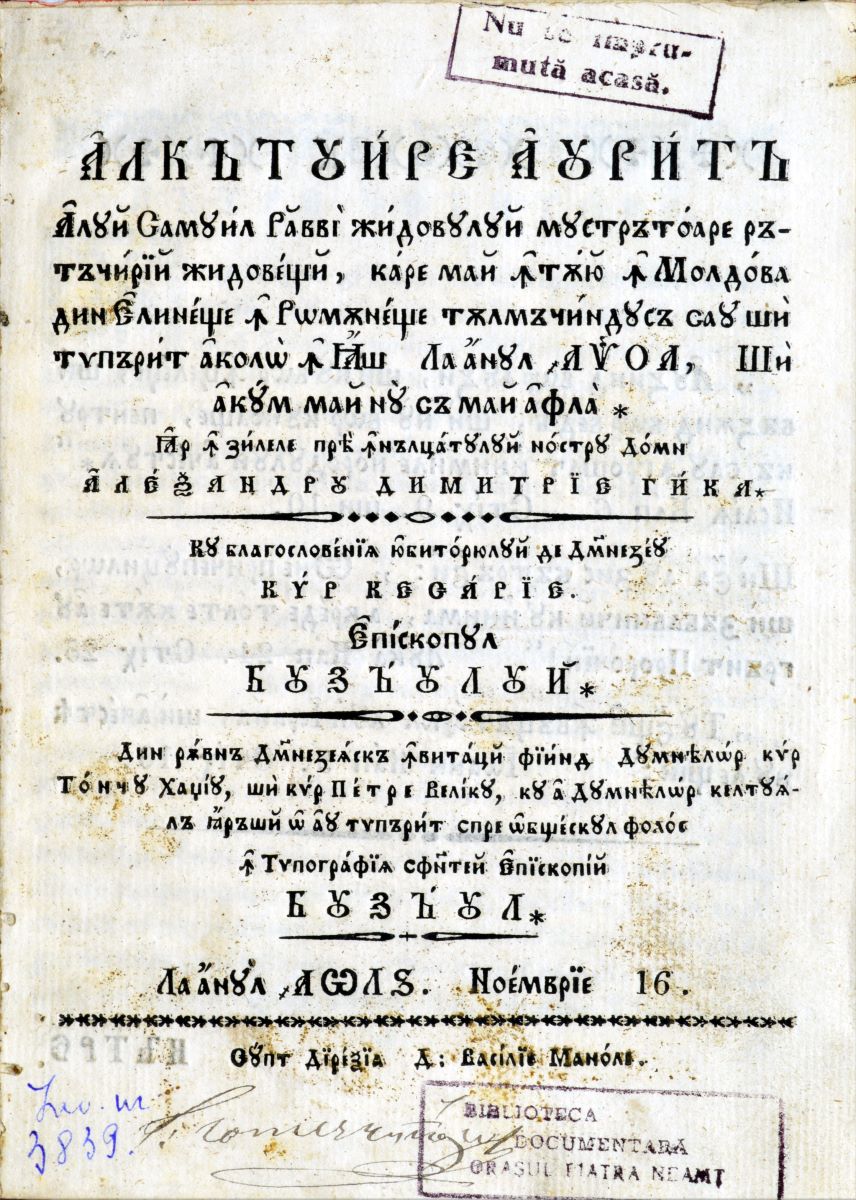 Nu se împru-
mută acasă.
А҆ЛКЪТꙊИ́РЕ А҆ꙊРИ́ТЪ
А҆лꙋй Самꙋи́л Ра́ввї жи́довꙋлꙋй мꙋстръто́аре ръ-
тъчи́рїй жидове́щй, ка́ре май ꙟ҆тѫ́ю ꙟ҆ Молдо́ва
дин Е҆лине́ще ꙟ҆ Рѡмѫне́ще тѫлмъчи́ндꙋсъ саꙋ шѝ
типъри́т а҆колѡ̀ ꙟ҆ Ꙗ҆ш Ла а҆́нꙋл ҂АѰОА, Шѝ
а҆кꙋ́м май нꙋ̀ съ май а҆флà *
Ꙗ҆р ꙟ҆ зи́леле прѣ ꙟ҆нълца́тꙋлꙋй но́стрꙋ До́мн
А҆ЛЕ́ѮАНДРꙊ ДИМИТРЇЕ ГИ́КА*
Кꙋ благослове́нїѧ ю҆бито́рюлꙋй де Дм҃незеꙋ
КѴ́Р КЕСА́РЇЕ.
Е҆пі́скопꙋл
БꙊЗЪ́ꙊЛꙊЙ*
Дин рѫ́внъ Дм҃незеѧ́скъ ꙟ҆вита́цй фїи́нд Дꙋмнѣло́р кѵ́р
То́нчꙋ Хаџі́ꙋ, шѝ кѵ́р Пе́тре Вели́кꙋ, кꙋ а҆ Дꙋмнѣло́р келтꙋѧ́-
лъ ꙗ҆ръшй ѡ҆ а҆ꙋ типъри́т спре ѡ҆бще́скꙋл фоло́с
ꙟ҆ Типогра́фїѧ сфи́нтей Е҆пїскопі́й
БꙊЗЪ́ꙊЛ*
Ла а҆́нꙋл ҂АѠЛЅ. Ное́мврїе 16.
Сꙋ́пт Дїре́зїа Д: Васі́лїе Мано́ле.
3839.
BIBLIOTECA
DOCUMENTARA
ORAȘUL PIATRA NEAMȚ